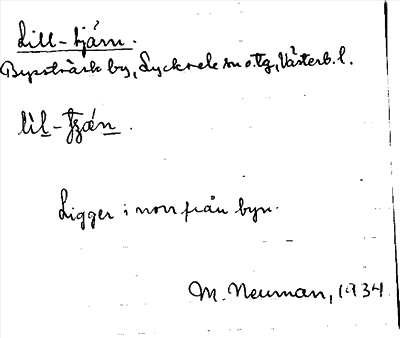 Lill-tjärn.
Byssträsk by, Lycksele sn o. tg, Västerb. l.
lìl-t͡ɟǽn.
Ligger i norr från byn.
M. Neuman, 1934